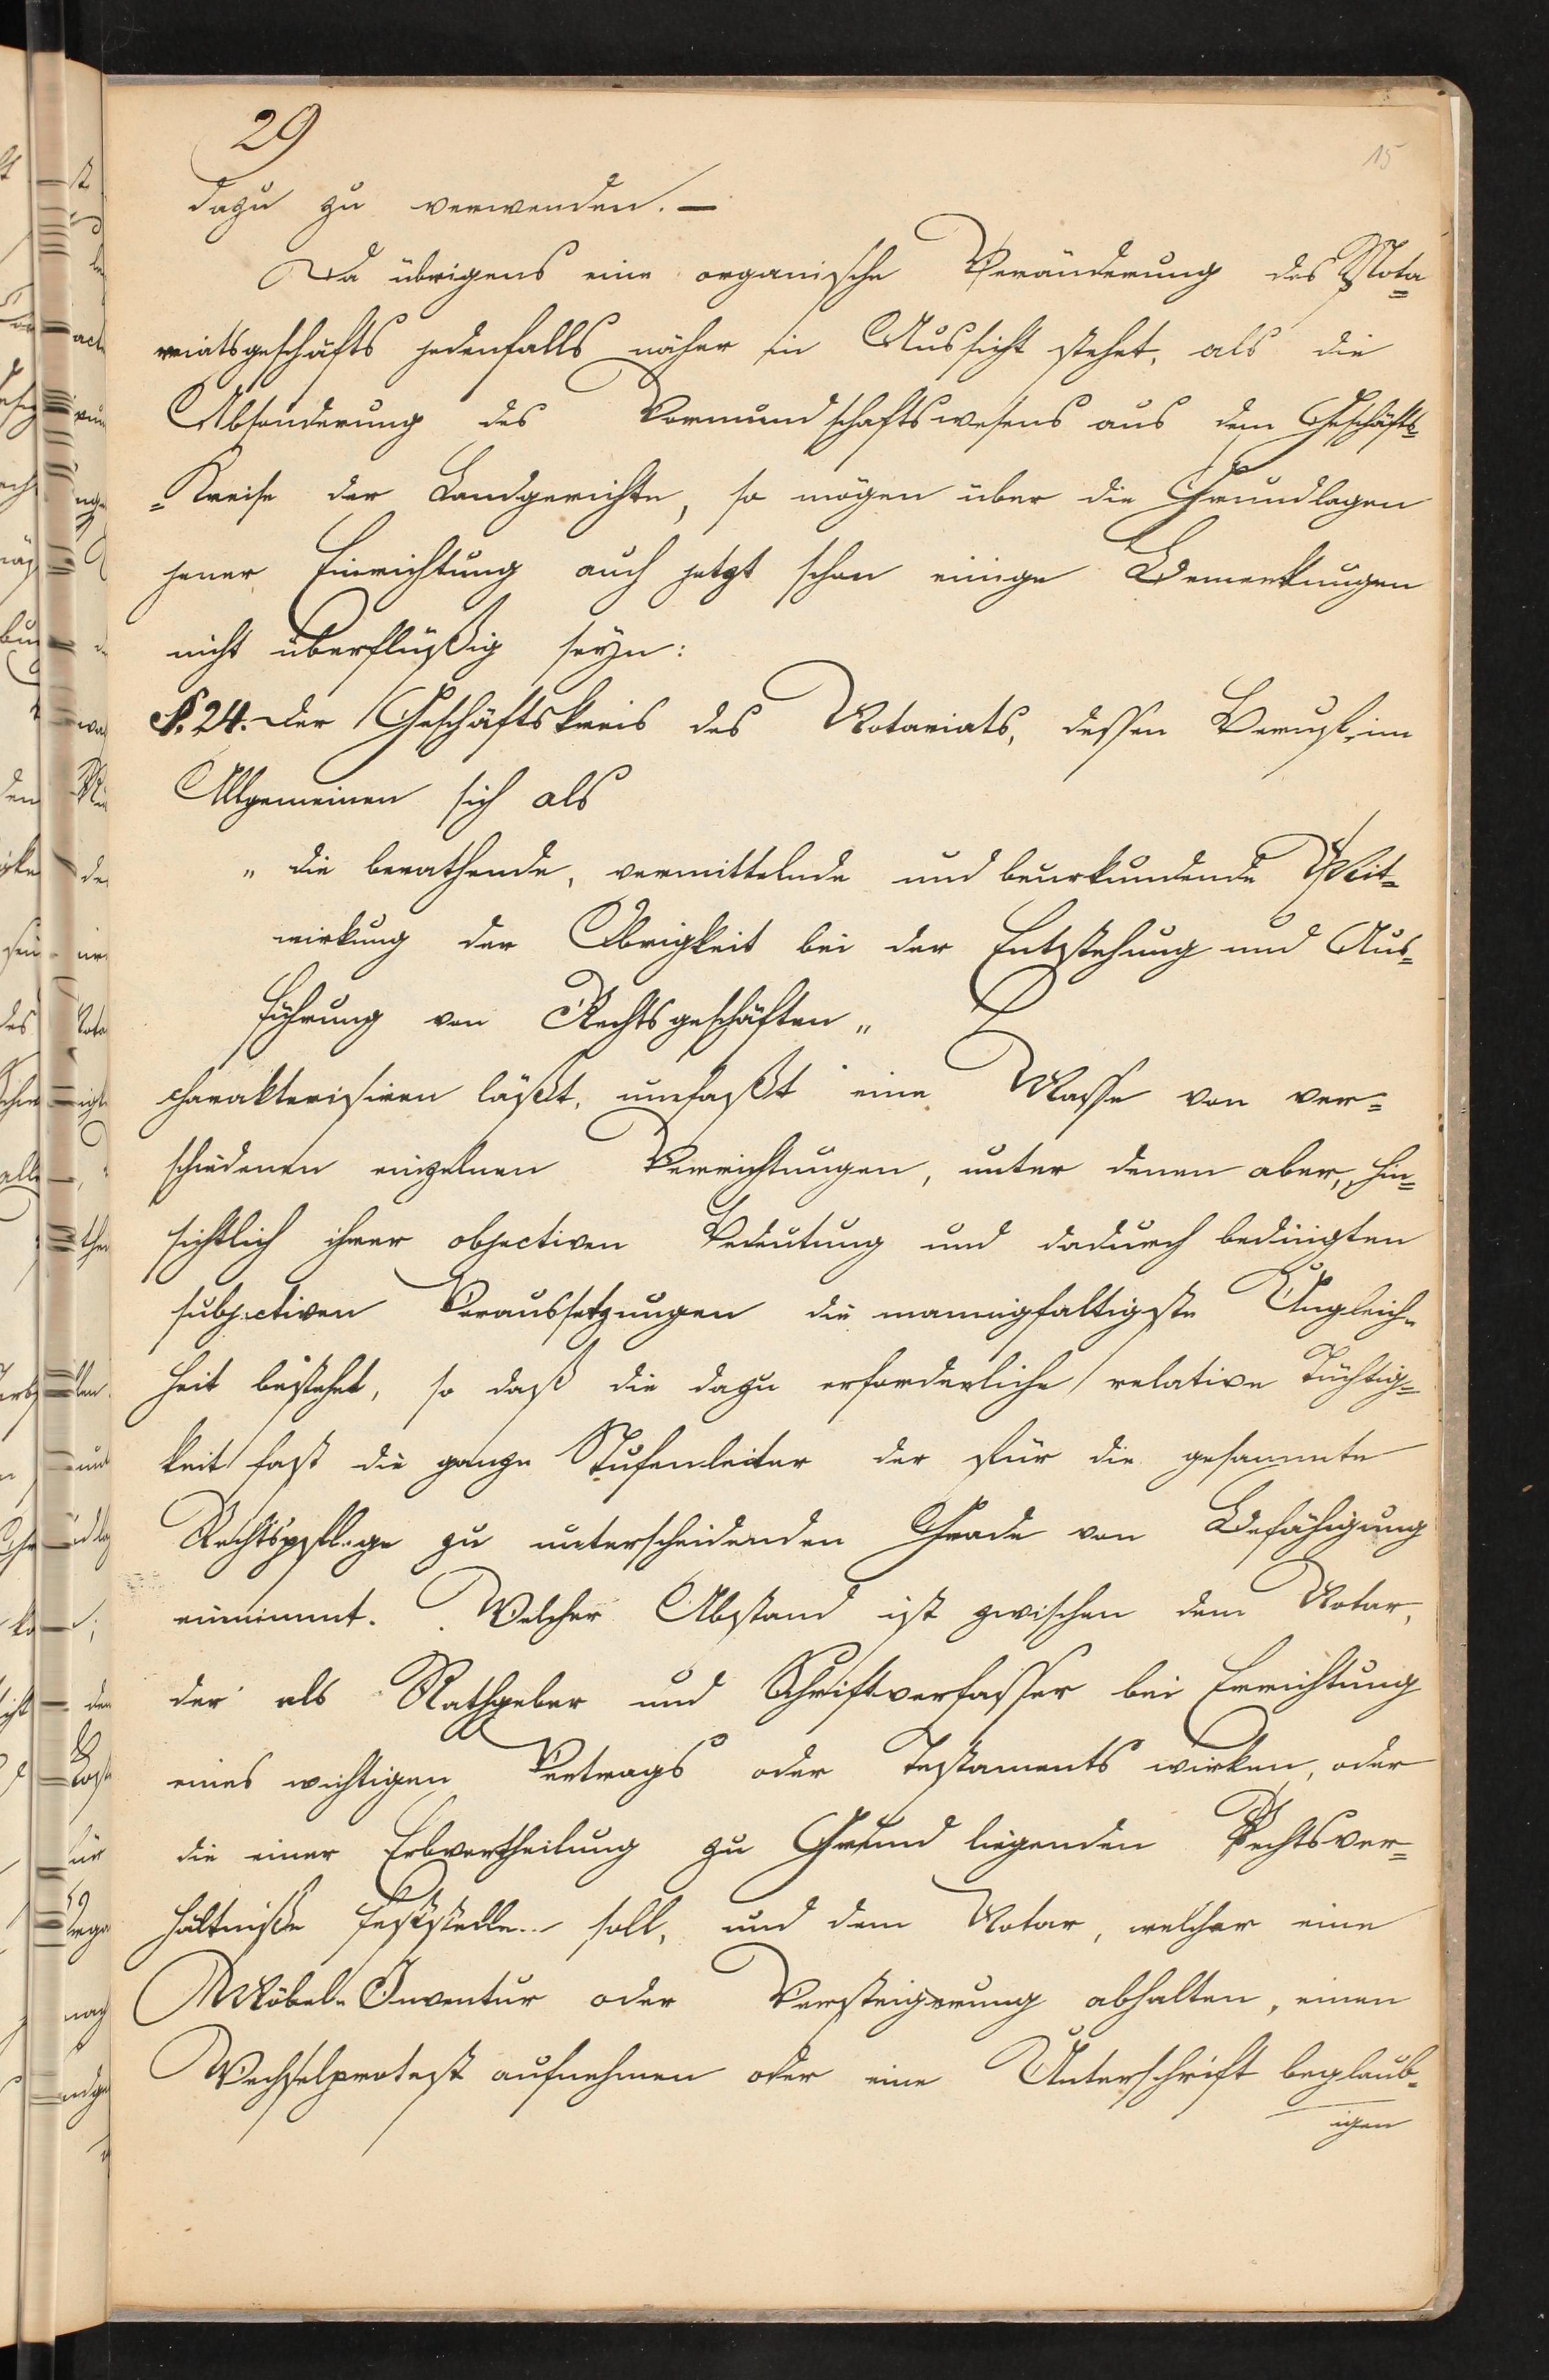 29
15
dazu zu verwenden. —
Da übrigens eine organische Veränderung des Nota=
riatsgeschäfts jedenfalls näher in Aussicht stehet, als die
Absonderung des Vormundschaftswesens aus dem Geschäfts=
=Kreise der Landgerichte, so mögen über die Grundlagen
jener Einrichtung auch jetzt schon einige Bemerkungen
nicht überflüßig seyn:
§. 24. Der Geschäftskreis des Notariats, dessen Beruf im
Allgemeinen sich als
„ die berathende, vermittelnde und beurkundende Mit=
wirkung der Obrigkeit bei der Entstehung und Aus=
führung von Rechtsgeschäften „
charakterisiren läßt, umfaßt eine Masse von ver=
schiedenen einzelnen Verrichtungen, unter denen aber, hin=
sichtlich ihrer objectiven Bedeutung und dadurch bedingten
subjectiven Voraussetzungen die mannigfaltigste Ungleich=
heit bestehet, so daß die dazu erforderliche relative Tüchtig=
keit fast die ganze Stufenleiter der für die gesammte
Rechtspflege zu unterscheidenden Grade von Befähigung
einnimmt. Welcher Abstand ist zwischen dem Notar,
der als Rathgeber und Schriftverfasser bei Errichtung
eines wichtigen Vertrags oder Testaments wirken, oder
die einer Erbvertheilung zu Grund liegenden Rechtsver=
hältniße feststellen soll, und dem Notar, welcher eine
Möbel=Inventur oder Versteigerung abhalten, einen
Wechselprotest aufnehmen oder eine Unterschrift beglaub=
igen